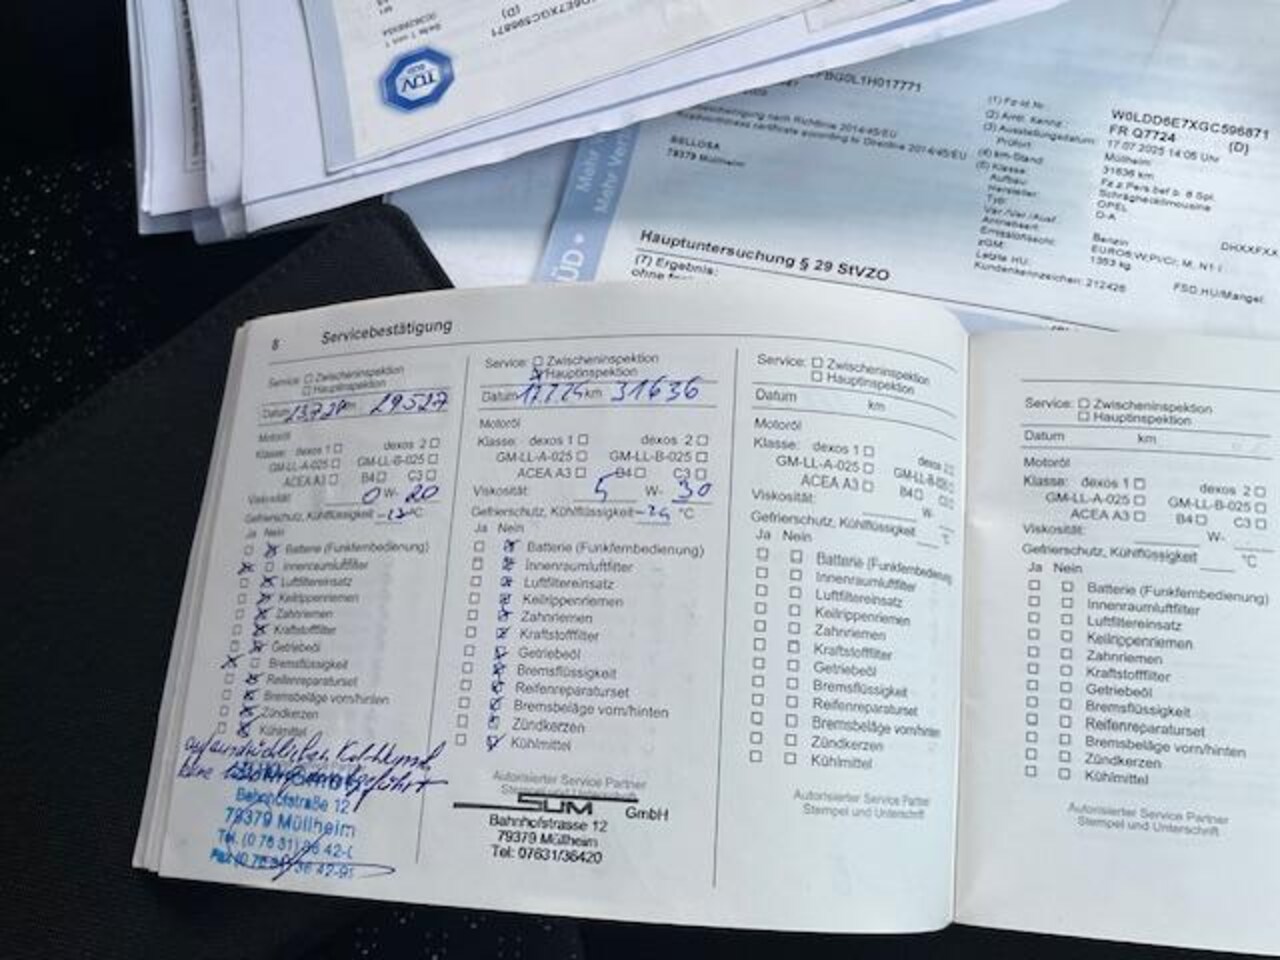 TÜV
SÜD
FBG0L1H017771
Richtlinie 2014/45/EU
certificate according to Directive 2014/45/EU
BELLOSA
79379 Müllheim
Mehr
Mehr
Hauptuntersuchung § 29 StVZO
(7) Ergebnis:
(1) Fz-Id.Nr. W0LDD6E7XGC596871
(2) Amtl. Kennz.: FR Q7724 (D)
(3) Ausstellungsdatum: 17.07.2025 14:05 Uhr
Prüfort: Müllheim
(4) km-Stand: 31636 km
(5) Klasse: Fz.z.Pers.bef.b. 8 Spl.
Aufbau: Schräghecklimousine
Hersteller: OPEL
Typ: D-A
Var./Ver./Ausf.: DHXXFXX
Antriebsart: Benzin
Emissionsklasse:
zGM: 1353 kg
Letzte HU:
Kundenkennzeichen: 212426
FSD:HU/Mangel:
8 Servicebestätigung
Service: Zwischeninspektion
Hauptinspektion
Datum km 29527
Motoröl
Klasse: dexos 1 dexos 2
GM-LL-A-025 GM-LL-B-025
ACEA A3 B4 C3
Viskosität: 0 W- 20
Gefrierschutz, Kühlflüssigkeit °C
Ja Nein
Batterie (Funkfernbedienung)
Innenraumluftfilter
Luftfiltereinsatz
Keilrippenriemen
Zahnriemen
Kraftstofffilter
Getriebeöl
Bremsflüssigkeit
Reifenreparaturset
Bremsbeläge vorn/hinten
Zündkerzen
Kühlmittel
Bahnhofstraße 12
79379 Müllheim
Tel. (0 76 31) 36 42-0
Service: Zwischeninspektion
Hauptinspektion
Datum 17.7.25 km 31636
Motoröl
Klasse: dexos 1 dexos 2
GM-LL-A-025 GM-LL-B-025
ACEA A3 B4 C3
Viskosität: 5 W- 30
Gefrierschutz, Kühlflüssigkeit °C
Ja Nein
Batterie (Funkfernbedienung)
Innenraumluftfilter
Luftfiltereinsatz
Keilrippenriemen
Zahnriemen
Kraftstofffilter
Getriebeöl
Bremsflüssigkeit
Reifenreparaturset
Bremsbeläge vorn/hinten
Zündkerzen
Kühlmittel
Autorisierter Service Partner
Stempel und Unterschrift
SUM GmbH
Bahnhofstrasse 12
79379 Müllheim
Tel: 07631/36420
Service: Zwischeninspektion
Hauptinspektion
Datum km
Motoröl
Klasse: dexos 1 dexos 2
GM-LL-A-025 GM-LL-B-025
ACEA A3 B4
Viskosität: W-
Gefrierschutz, Kühlflüssigkeit °C
Ja Nein
Batterie (Funkfernbedienung
Innenraumluftfilter
Luftfiltereinsatz
Keilrippenriemen
Zahnriemen
Kraftstofffilter
Getriebeöl
Bremsflüssigkeit
Reifenreparaturset
Bremsbeläge vorn/hinten
Zündkerzen
Kühlmittel
Autorisierter Service Partner
Stempel und Unterschrift
Service: Zwischeninspektion
Hauptinspektion
Datum km
Motoröl
Klasse: dexos 1 dexos 2
GM-LL-A-025 GM-LL-B-025
ACEA A3 B4 C3
Viskosität: W-
Gefrierschutz, Kühlflüssigkeit °C
Ja Nein
Batterie (Funkfernbedienung)
Innenraumluftfilter
Luftfiltereinsatz
Keilrippenriemen
Zahnriemen
Kraftstofffilter
Getriebeöl
Bremsflüssigkeit
Reifenreparaturset
Bremsbeläge vorn/hinten
Zündkerzen
Kühlmittel
Autorisierter Service Partner
Stempel und Unterschrift